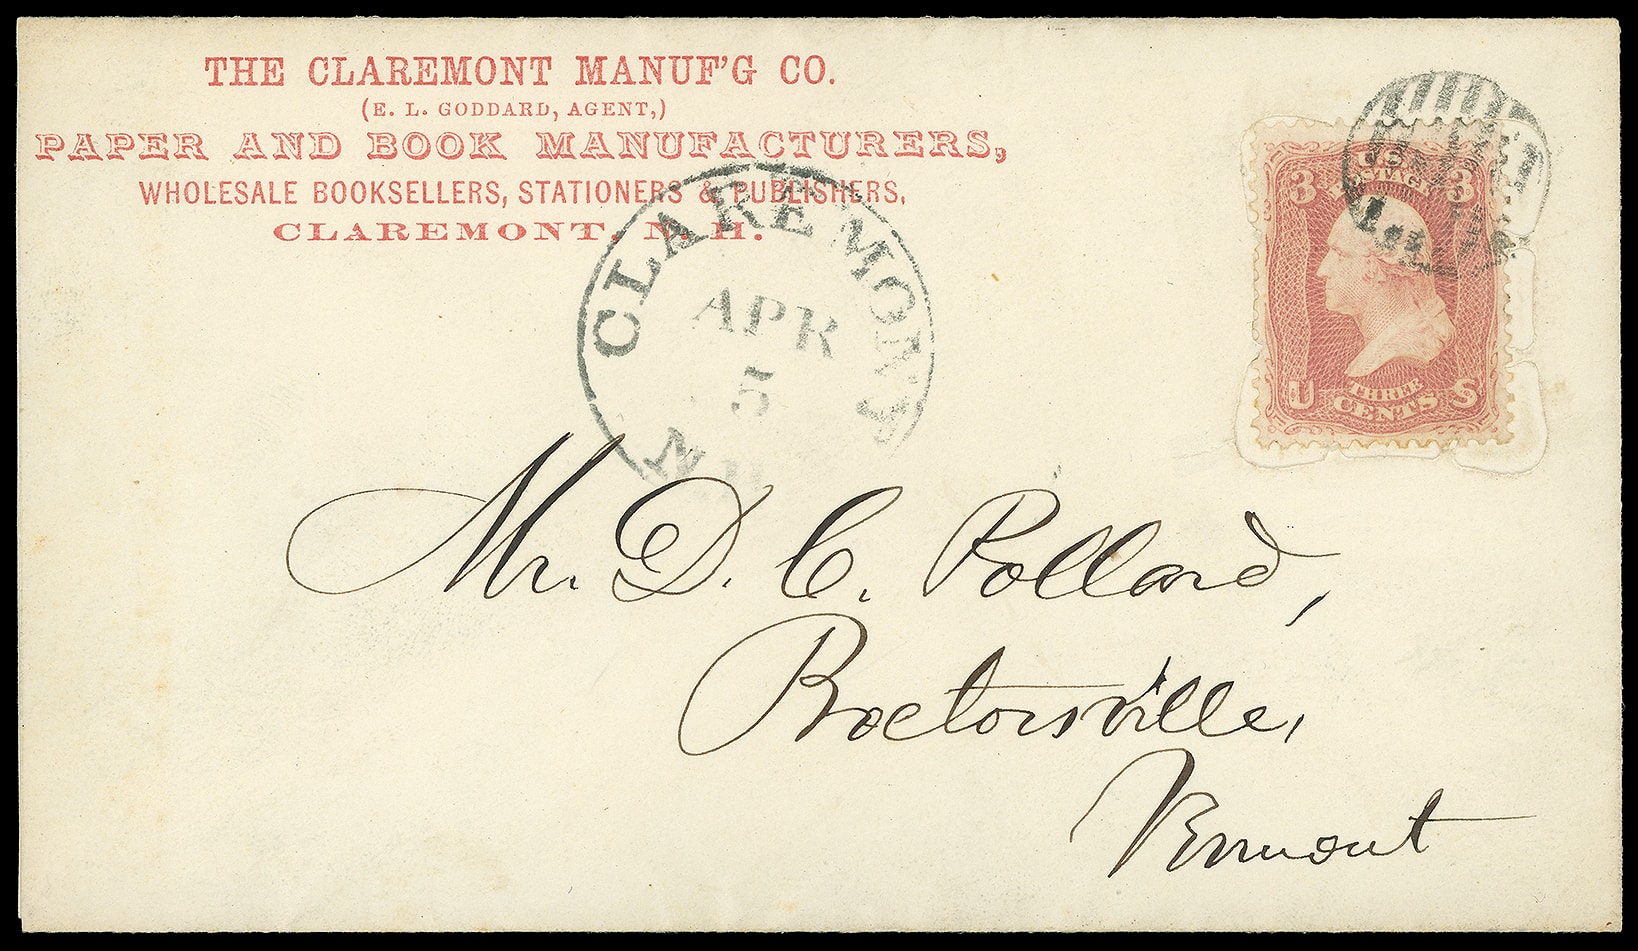 THE CLAREMONT MANUF'G CO.
(E. L. GODDARD, AGENT,)
PAPER AND BOOK MANUFACTURERS,
WHOLESALE BOOKSELLERS, STATIONERS & PUBLISHERS,
CLAREMONT, N. H.
CLAREMONT
APR
5
N.H.
U S
POSTAGE
3 3
U THREE S
CENTS
Mr. D. C. Pollard,
Proctorsville,
Vermont